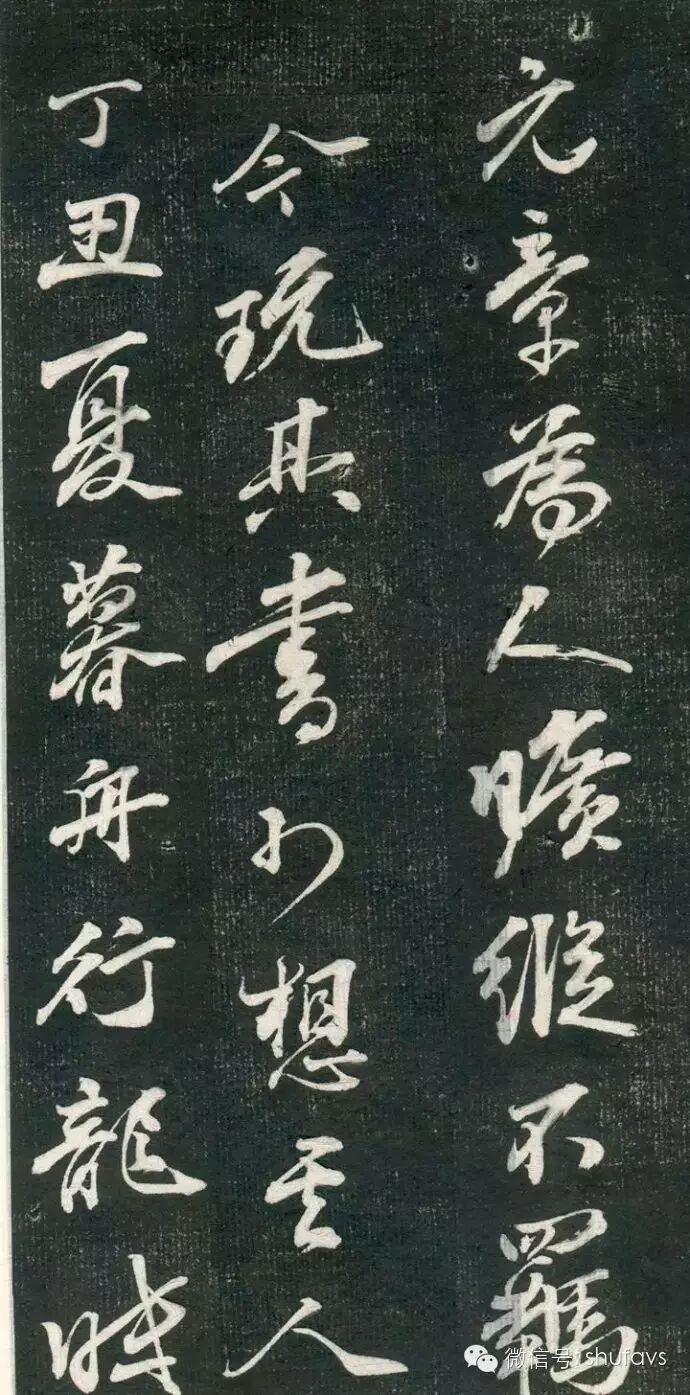 元章為人曠縱不羈
今玩其書可想其人
丁丑夏暮舟行龍
微信号: shufavs